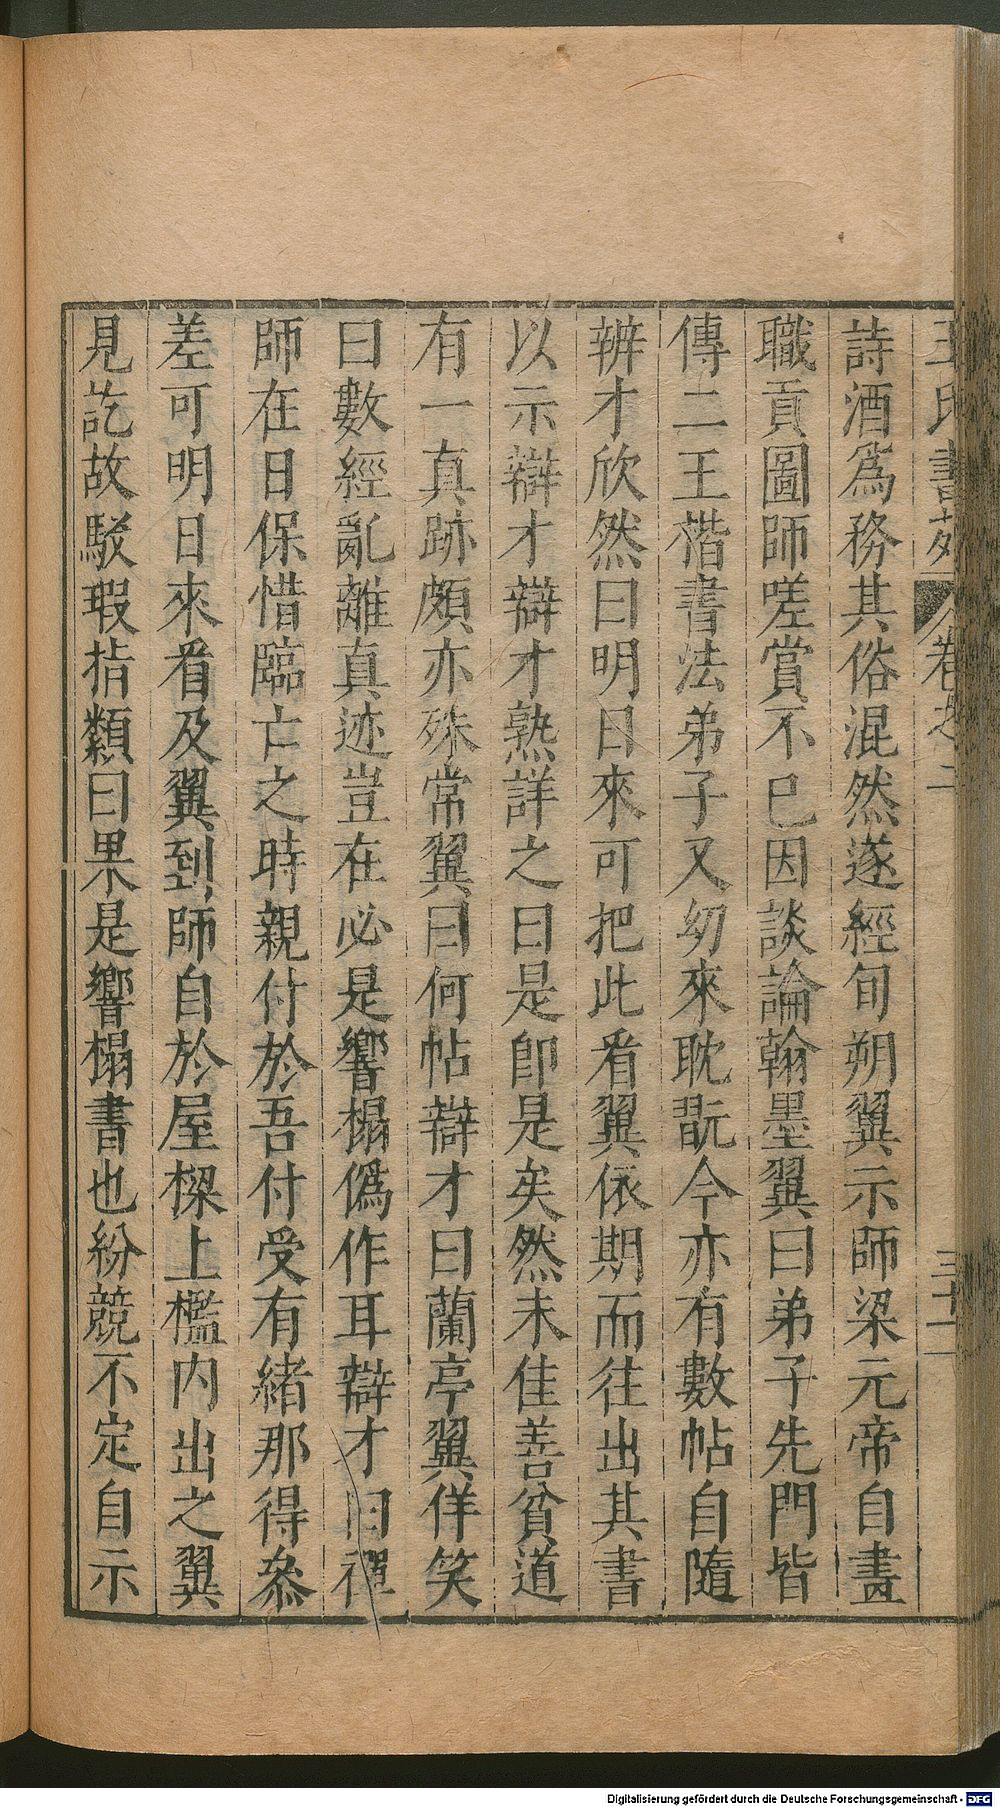 王氏書苑 卷之二 三十一
詩酒爲務其俗混然遂經旬朔翼示師梁元帝自畫
職貢圖師嗟賞不已因談論翰墨翼曰弟子先門皆
傳二王楷書法弟子又幼來耽翫今亦有數帖自隨
辨才欣然曰明日來可把此看翼依期而往出其書
以示辯才辯才熟詳之曰是卽是矣然未佳善貧道
有一真跡頗亦殊常翼曰何帖辯才曰蘭亭翼佯笑
曰數經亂離真迹豈在必是響榻僞作耳辯才曰禪
師在日保惜臨亡之時親付於吾付受有緒那得叅
差可明日來看及翼到師自於屋樑上檻内出之翼
見訖故駁瑕指纇曰果是響榻書也紛競不定自示
Digitalisierung gefördert durch die Deutsche Forschungsgemeinschaft - DFG